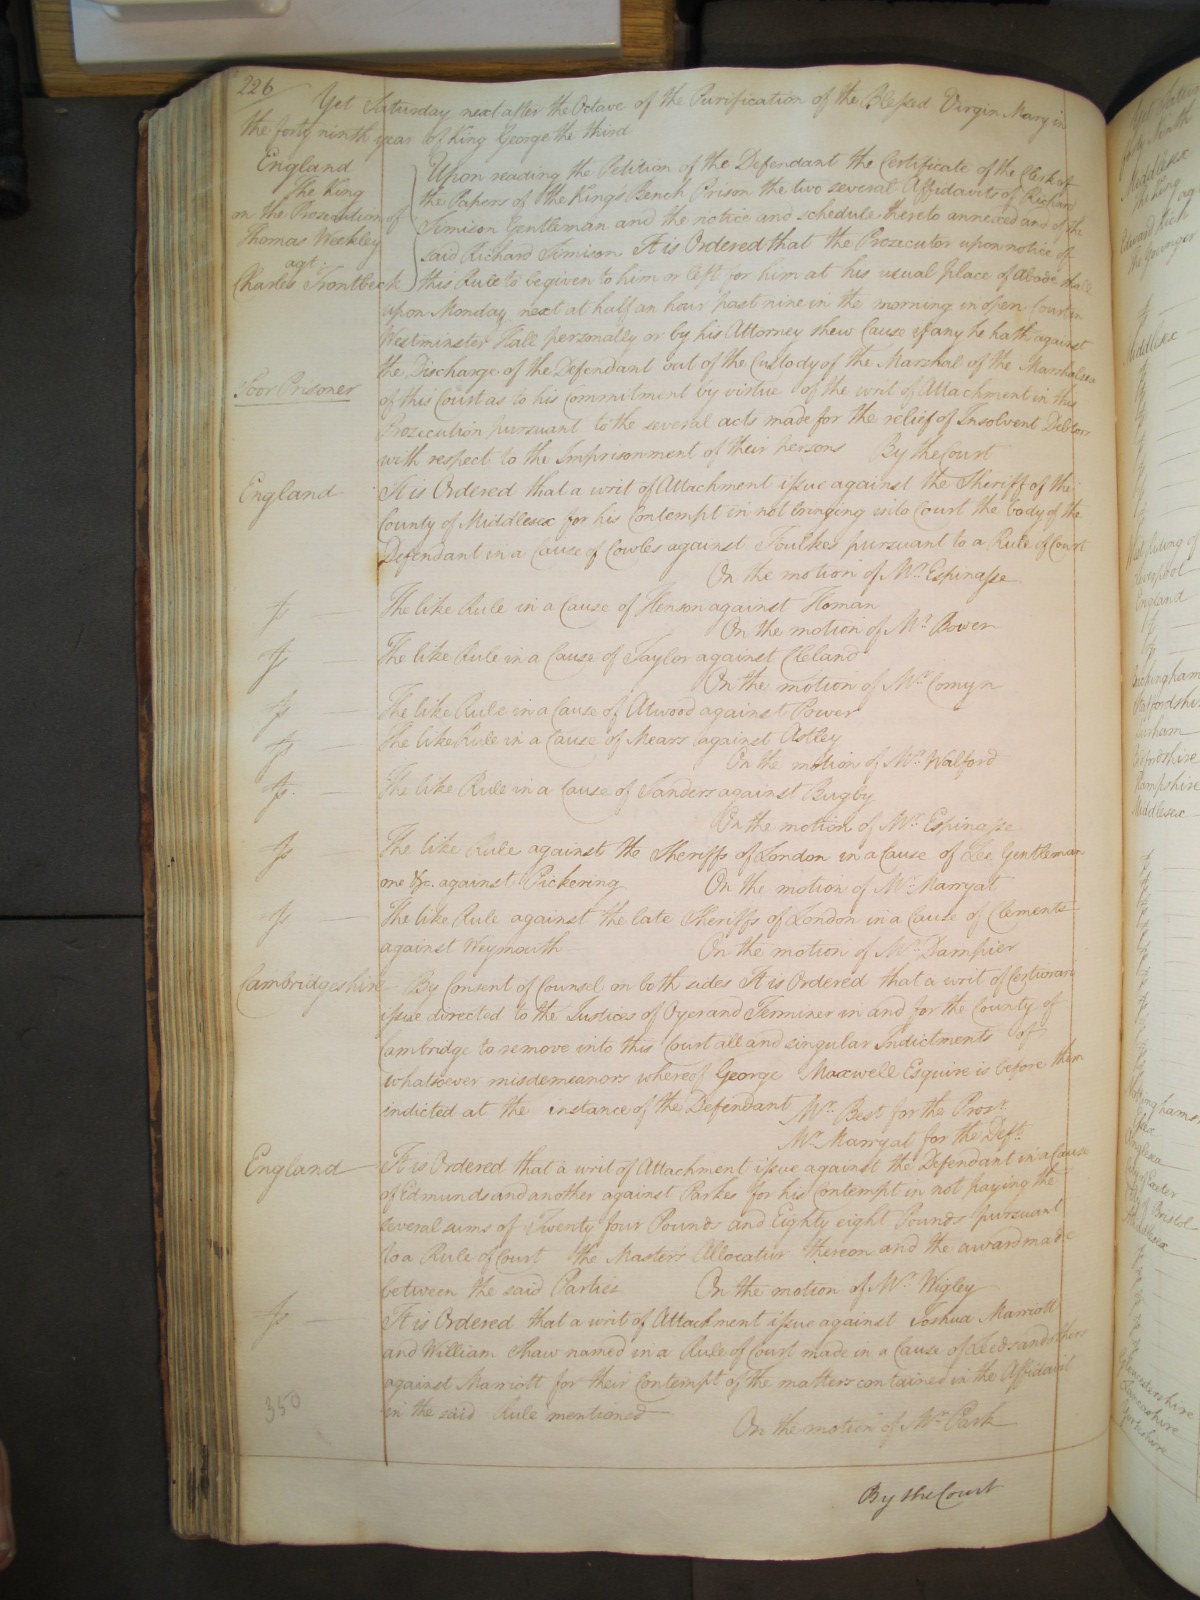 226
Yet Saturday next after the Octave of the Purification of the Blessed Virgin Mary in
the forty ninth year of King George the third
England
The King
on the Prosecution of
Thomas Weekley
agt.
Charles Trontbeck
Upon reading the Petition of the Defendant the Certificate of the Clerk of
the Papers of the Kings Bench Prison the two several Affidavits of Richard
Simison Gentleman and the notice and schedule thereto annexed and of the
said Richard Simison It is Ordered that the Prozecutor upon notice of
this Rule to be given to him or left for him at his usual place of abode shall
upon Monday next at half an hour past nine in the morning in open Court in
Westminster Hall personally or by his Attorney shew Cause if any he hath against
the Discharge of the Defendant out of the Custody of the Marshal of the Marshalsea
Poor Prisoner
of this Court as to his Commitment by virtue of the writ of Attachment in this
Prozecution pursuant to the several acts made for the relief of Insolvent Debtors
with respect to the Imprisonment of their persons By the Court
England
It is Ordered that a writ of Attachment issue against the Sheriff of the
County of Middlesex for his Contempt in not bringing into Court the body of the
Defendant in a Cause of Cowles against Foulkes pursuant to a Rule of Court
On the motion of Mr. Espinasse
The like Rule in a Cause of Henson against Homan
On the motion of Mr. Bowen
The like Rule in a Cause of Taylor against Cleland
On the motion of Mr. Comyn
The like Rule in a Cause of Atwood against Power
The like Rule in a Cause of Mears against Astley
On the motion of Mr. Walford
The like Rule in a Cause of Sanders against Bugby
On the motion of Mr. Espinasse
The like Rule against the Sheriffs of London in a Cause of Lee Gentleman
one &c. against Pickering On the motion of Mr. Marryat
The like Rule against the late Sheriffs of London in a Cause of Clements
against Weymouth On the motion of Mr. Dampier
Cambridgeshire
By Consent of Counsel on both sides It is Ordered that a writ of Certiorari
issue directed to the Justices of Oyer and Terminer in and for the County of
Cambridge to remove into this Court all and singular Indictments of
whatsoever misdemeanors whereof George Maxwell Esquire is before them
indicted at the instance of the Defendant Mr. Best for the Prosr.
Mr. Marryat for the Deft.
England
It is Ordered that a writ of Attachment issue against the Defendant in a Cause
of Edmunds and another against Parkes for his Contempt in not paying the
several sums of Twenty four Pounds and Eighty eight Pounds pursuant
to a Rule of Court the Masters Allocatur thereon and the award made
between the said Parties On the motion of Mr. Wigley
It is Ordered that a writ of Attachment issue against Joshua Marriott
and William Shaw named in a Rule of Court made in a Cause of Leeds and others
against Marriott for their Contempt of the matters contained in the Affidavit
in the said Rule mentioned
On the motion of Mr. Park
350
By the Court